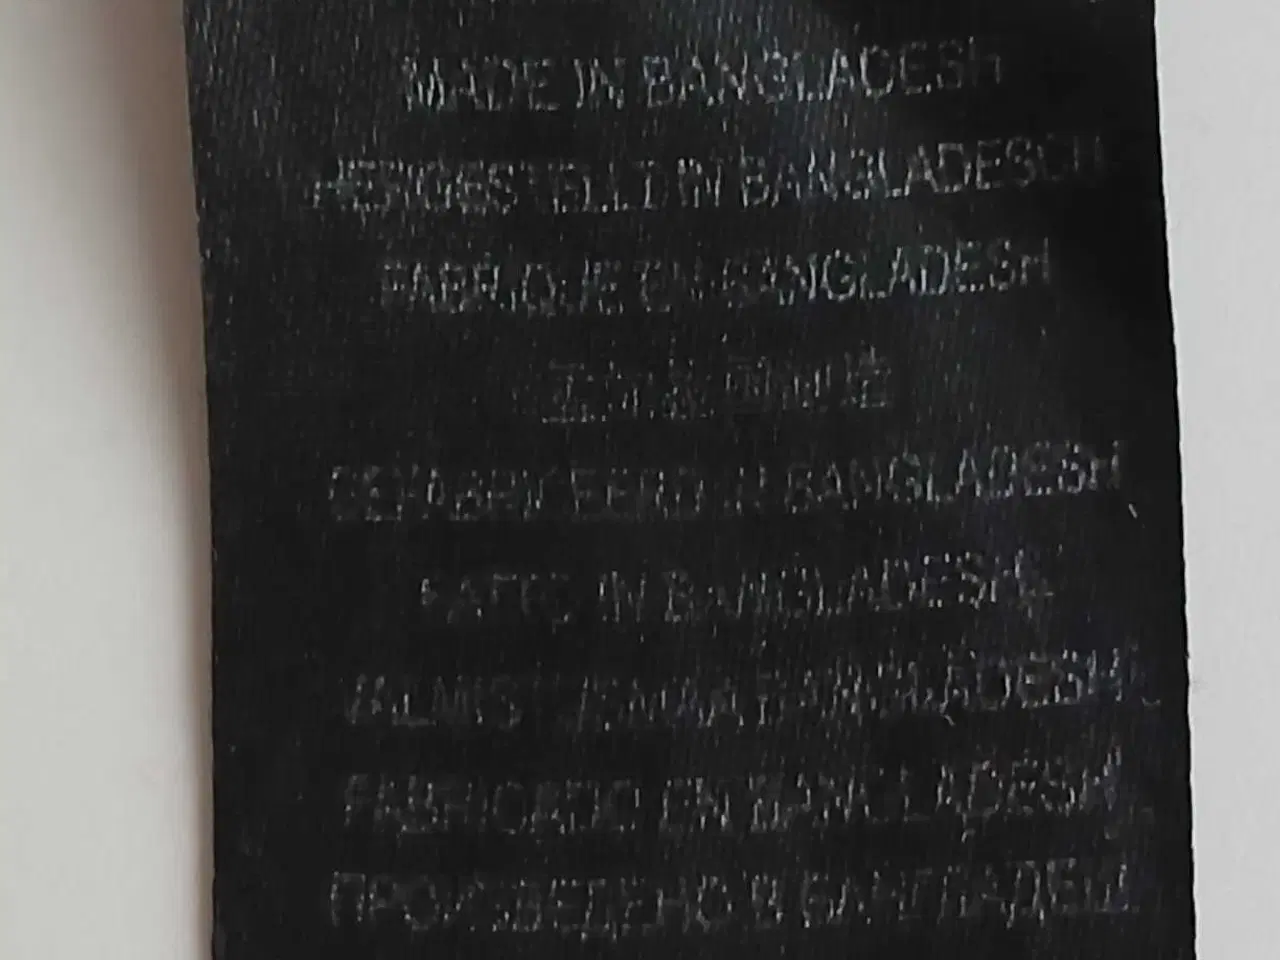 MADE IN BANGLADESH
HERGESTELLT IN BANGLADESCH
FABRIQUE EN BANGLADESH
GEFABRICEERD IN BANGLADESH
FATTO IN BANGLADESH
BANGLADESH
FABRICADO EN BANGLADESH
ПРОИЗВЕДЕНО В БАНГЛАДЕШ